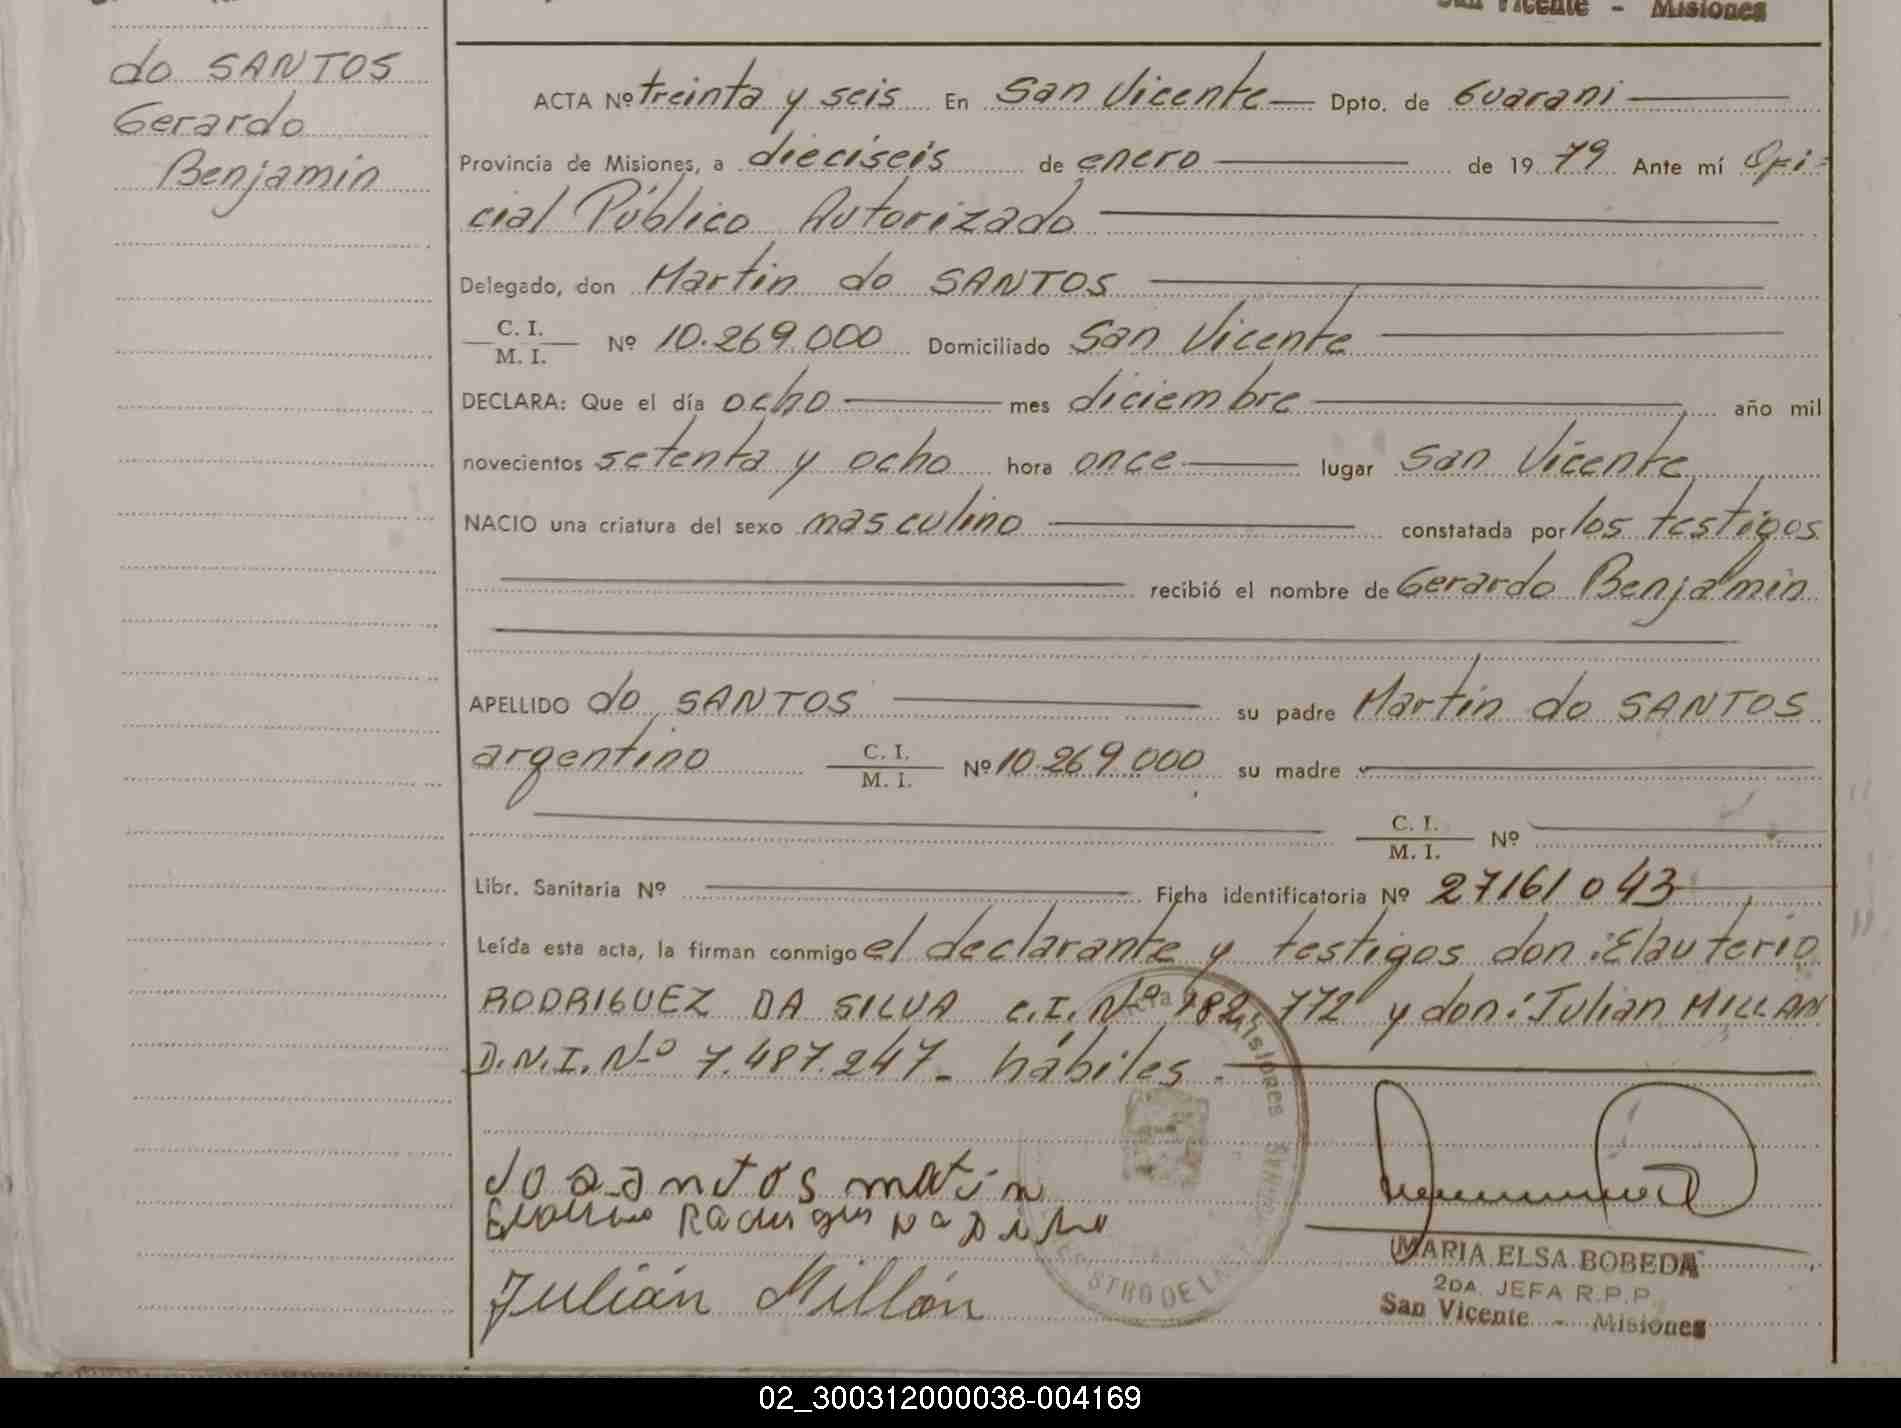 San Vicente - Misiones
do SANTOS
Gerardo
Benjamin
ACTA Nº treinta y seis En San Vicente Dpto. de Guarani
Provincia de Misiones, a dieciseis de enero de 1979 Ante mí Ofi=
cial Público Autorizado
Delegado, don Martin do SANTOS
C. I.
M. I. Nº 10.269.000 Domiciliado San Vicente
DECLARA: Que el día ocho mes diciembre año mil
novecientos setenta y ocho hora once lugar San Vicente
NACIO una criatura del sexo masculino constatada por los testigos
recibió el nombre de Gerardo Benjamin
APELLIDO do SANTOS su padre Martin do SANTOS
argentino C. I.
M. I. Nº 10.269.000 su madre
C. I.
M. I. Nº
Libr. Sanitaria Nº Ficha identificatoria Nº 27161043
Leída esta acta, la firman conmigo el declarante y testigos don: Elauterio
RODRIGUEZ DA SILVA C.I. Nº 182.772 y don: Julian MILLAN
D.N.I. Nº 7.487.247 - hábiles.-
do santos matin
Julián Millán
MARIA ELSA BOBEDA
2DA. JEFA R.P.P.
San Vicente - Misiones
02_300312000038-004169